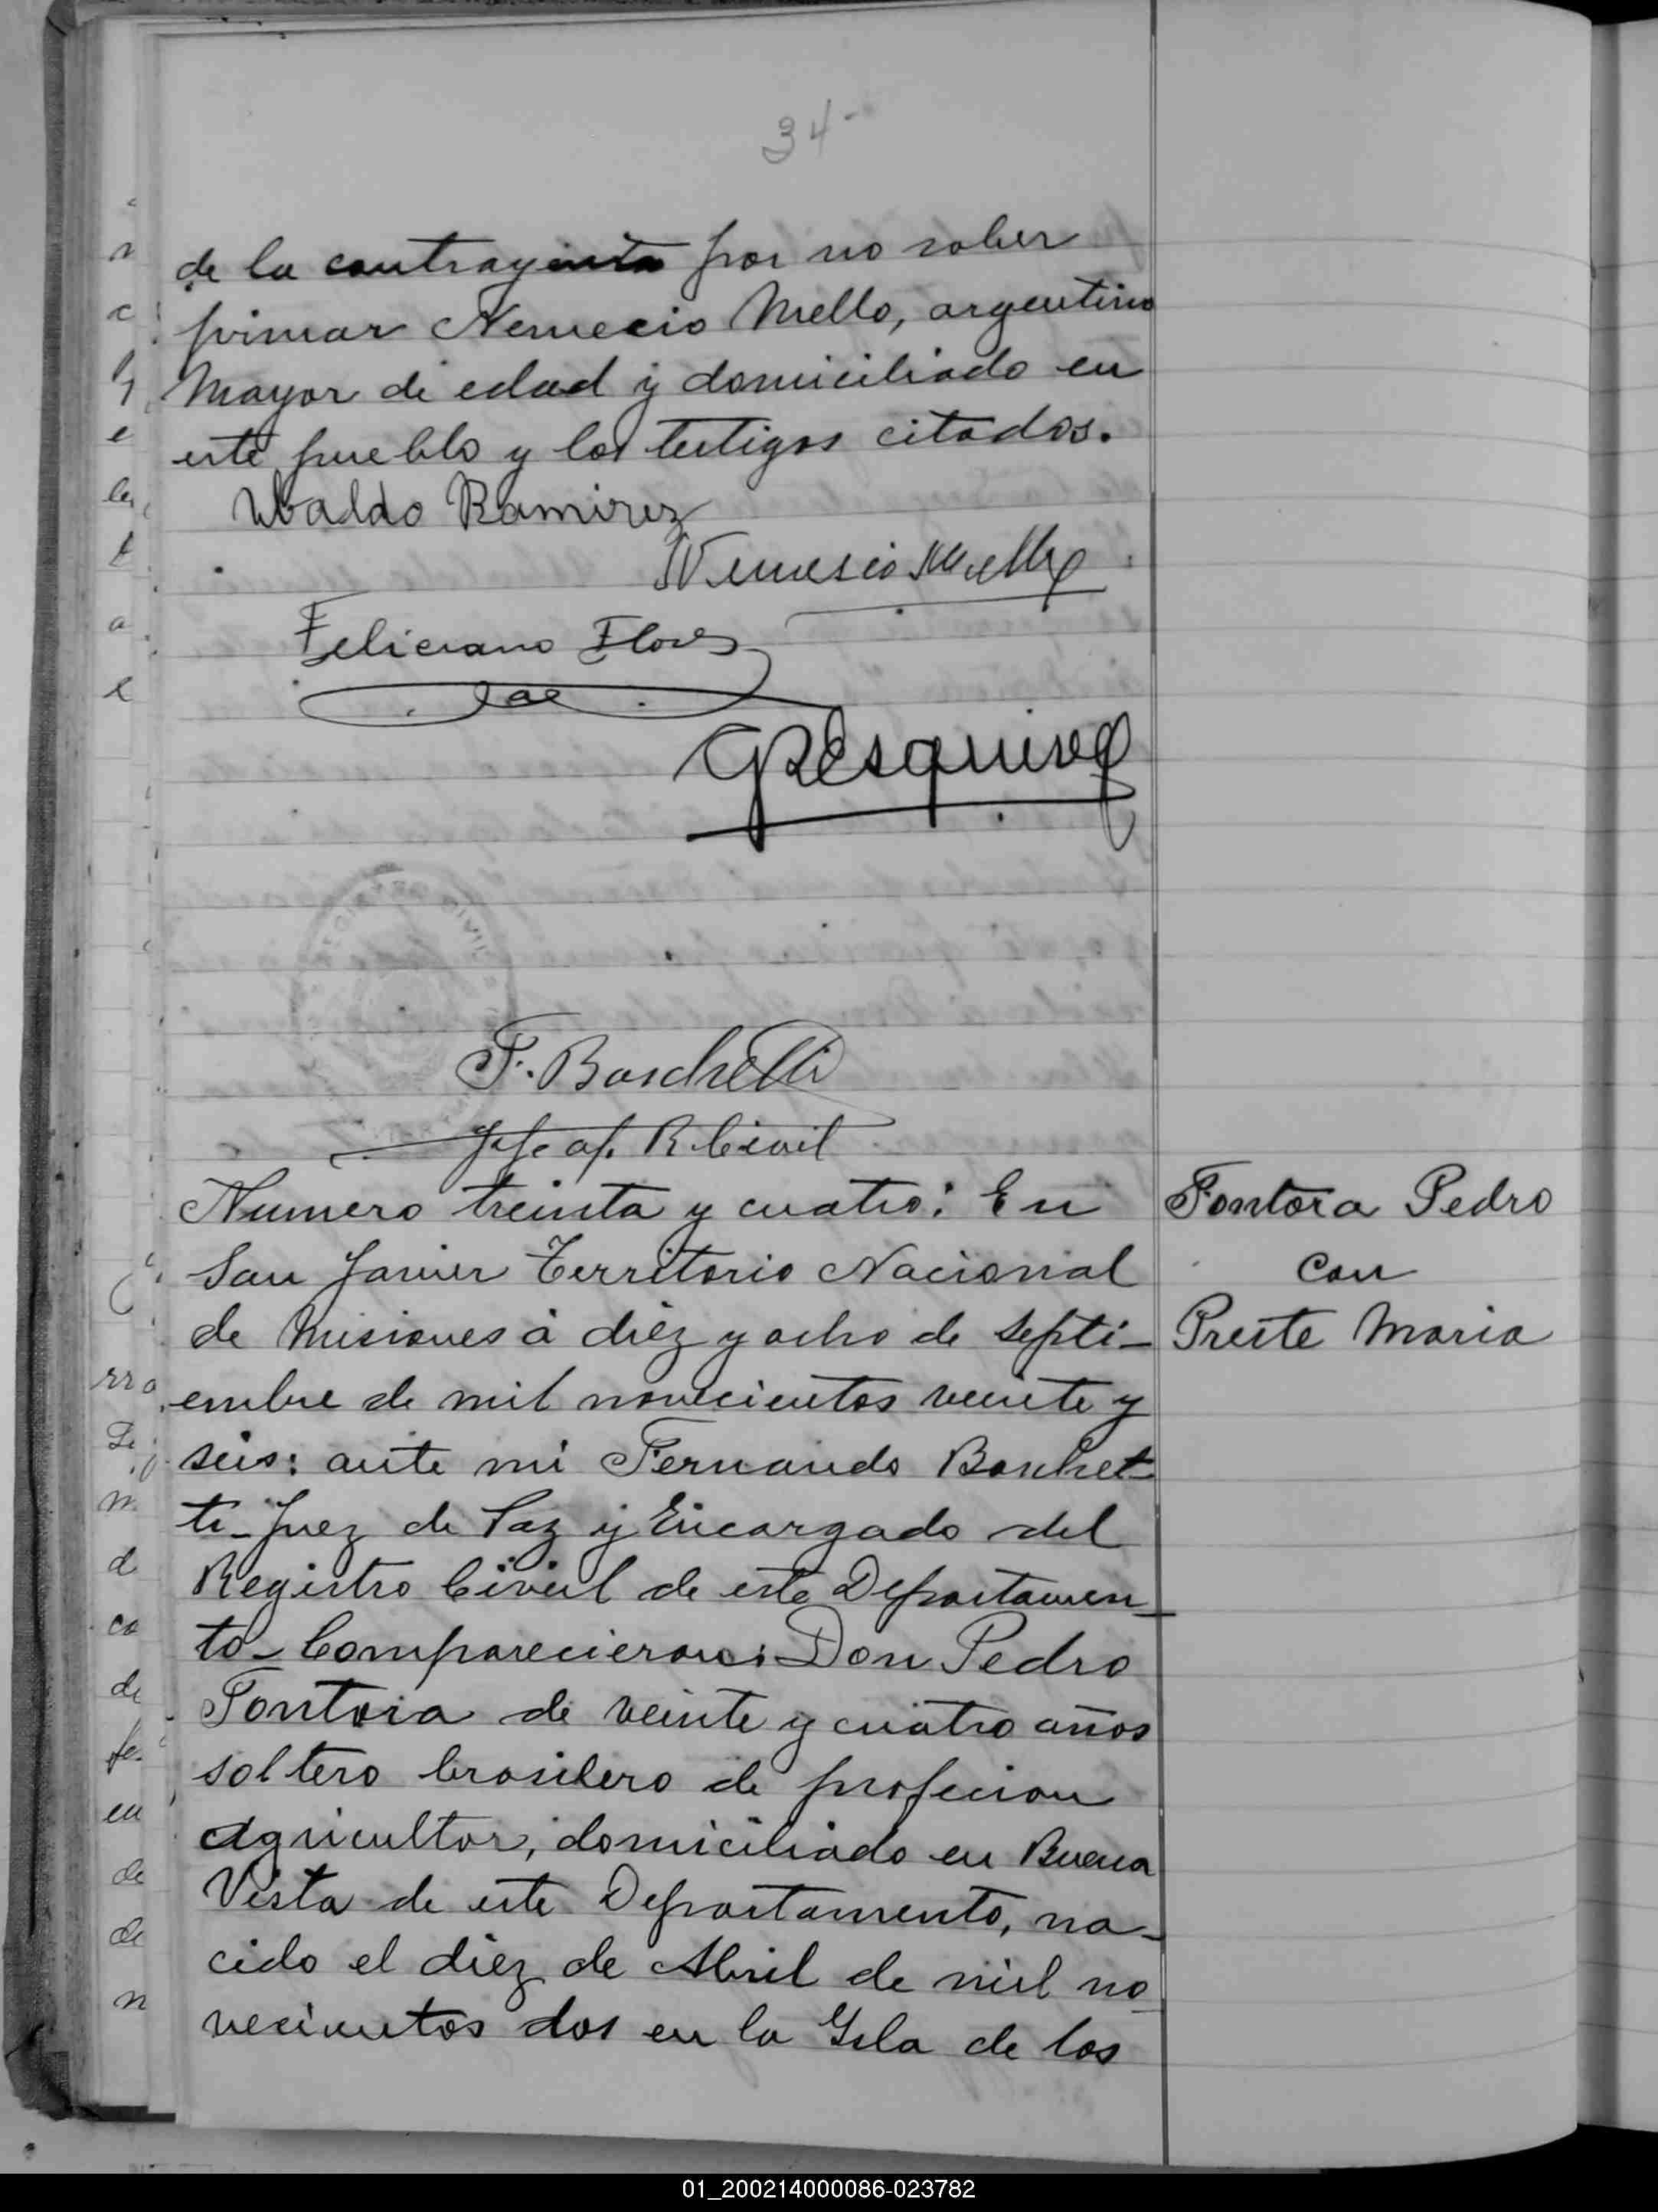 34-
de la contrayente por no saber
firmar Nemecio Mello, argentino
Mayor de edad y domiciliado en
este pueblo y los testigos citados.
Ubaldo Ramirez
Nemesio Mello
Feliciano Flores
GREsquivel
F. Boschetti
Jefe of. R Civil
Numero treinta y cuatro: En
San Javier Territorio Nacional
de Misiones á diéz y ocho de Septi-
embre de mil novecientos veinte y
seis: ante mi Fernando Boschet-
ti-Juez de Paz y Encargado del
Registro Civil de este Departamen-
to-Comparecieron: Don Pedro
Fontora de veinte y cuatro años
soltero brasilero de profecion
Agricultor, domiciliado en Buena
Vista de este Departamento, na-
cido el diez de Abril de mil no-
vecientos dos en la Ysla de los
Fontora Pedro
Con
Preste Maria
01_200214000086-023782